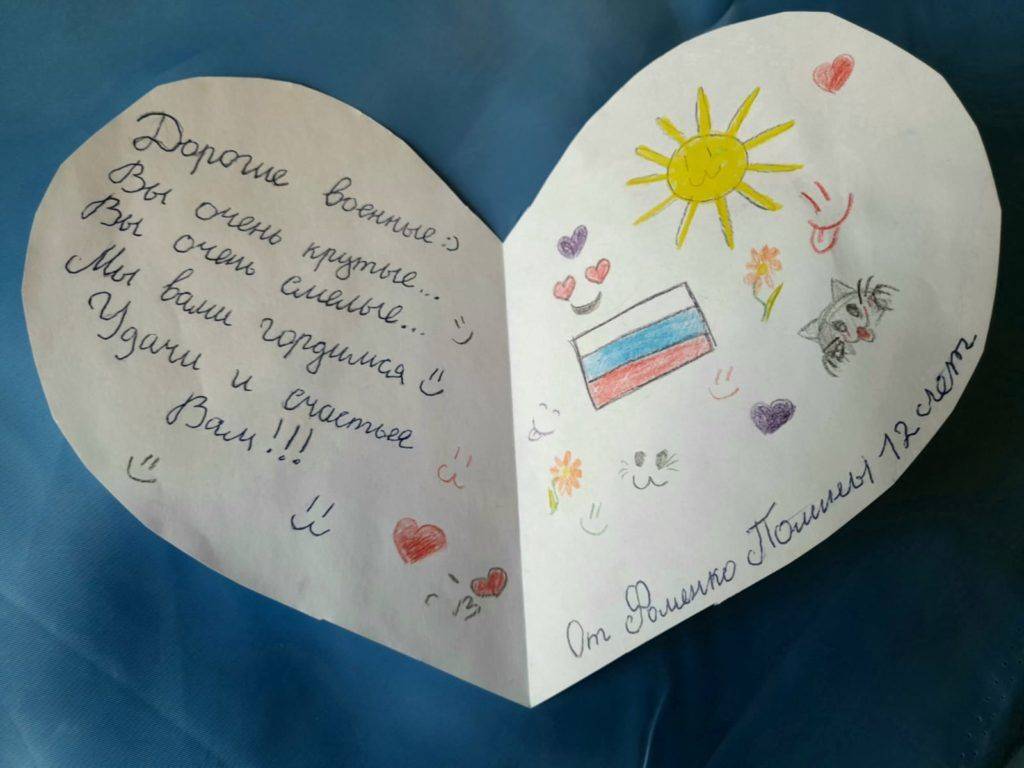 Дорогие военные :)
Вы очень крутые...
Вы очень смелые...
Мы вами гордимся
Удачи и счастья
Вам!!!
От Фоменко Полины 12 лет